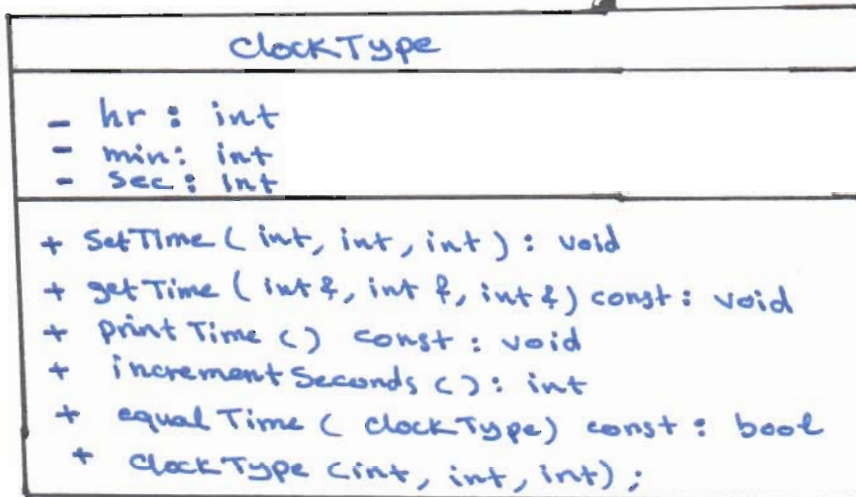 clockType
- hr : int
- min: int
- sec: int
+ SetTime ( int, int, int ) : void
+ getTime ( int &, int &, int &) const: void
+ print Time () const : void
+ increment Seconds () : int
+ equal Time ( clockType) const : bool
+ clockType (int, int, int) ;